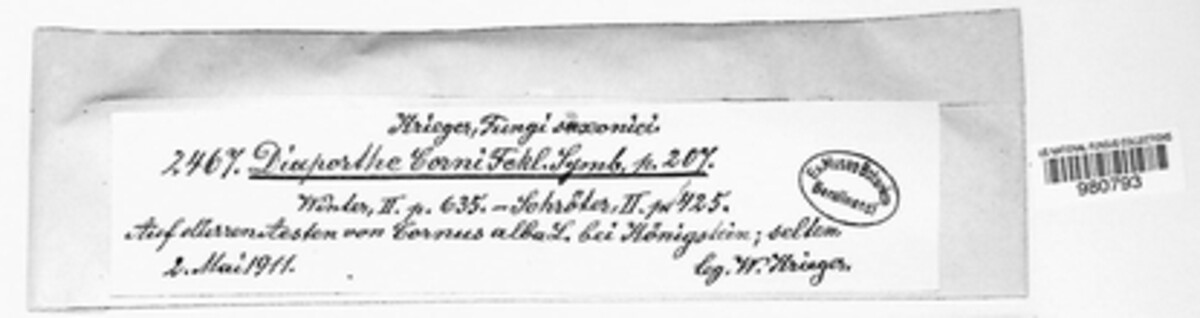 Krieger, Fungi saxonici.
2467. Diaporthe Corni Fckl. Symb. p. 207.
Winter, II. p. 635. – Schröter, II. p. 425.
Auf dürren Aesten von Cornus alba L. bei Königstein; selten.
2. Mai 1911.
leg. W. Krieger.
Ex Museo Botanico
Berolinensi
US NATIONAL FUNGUS COLLECTIONS
980793